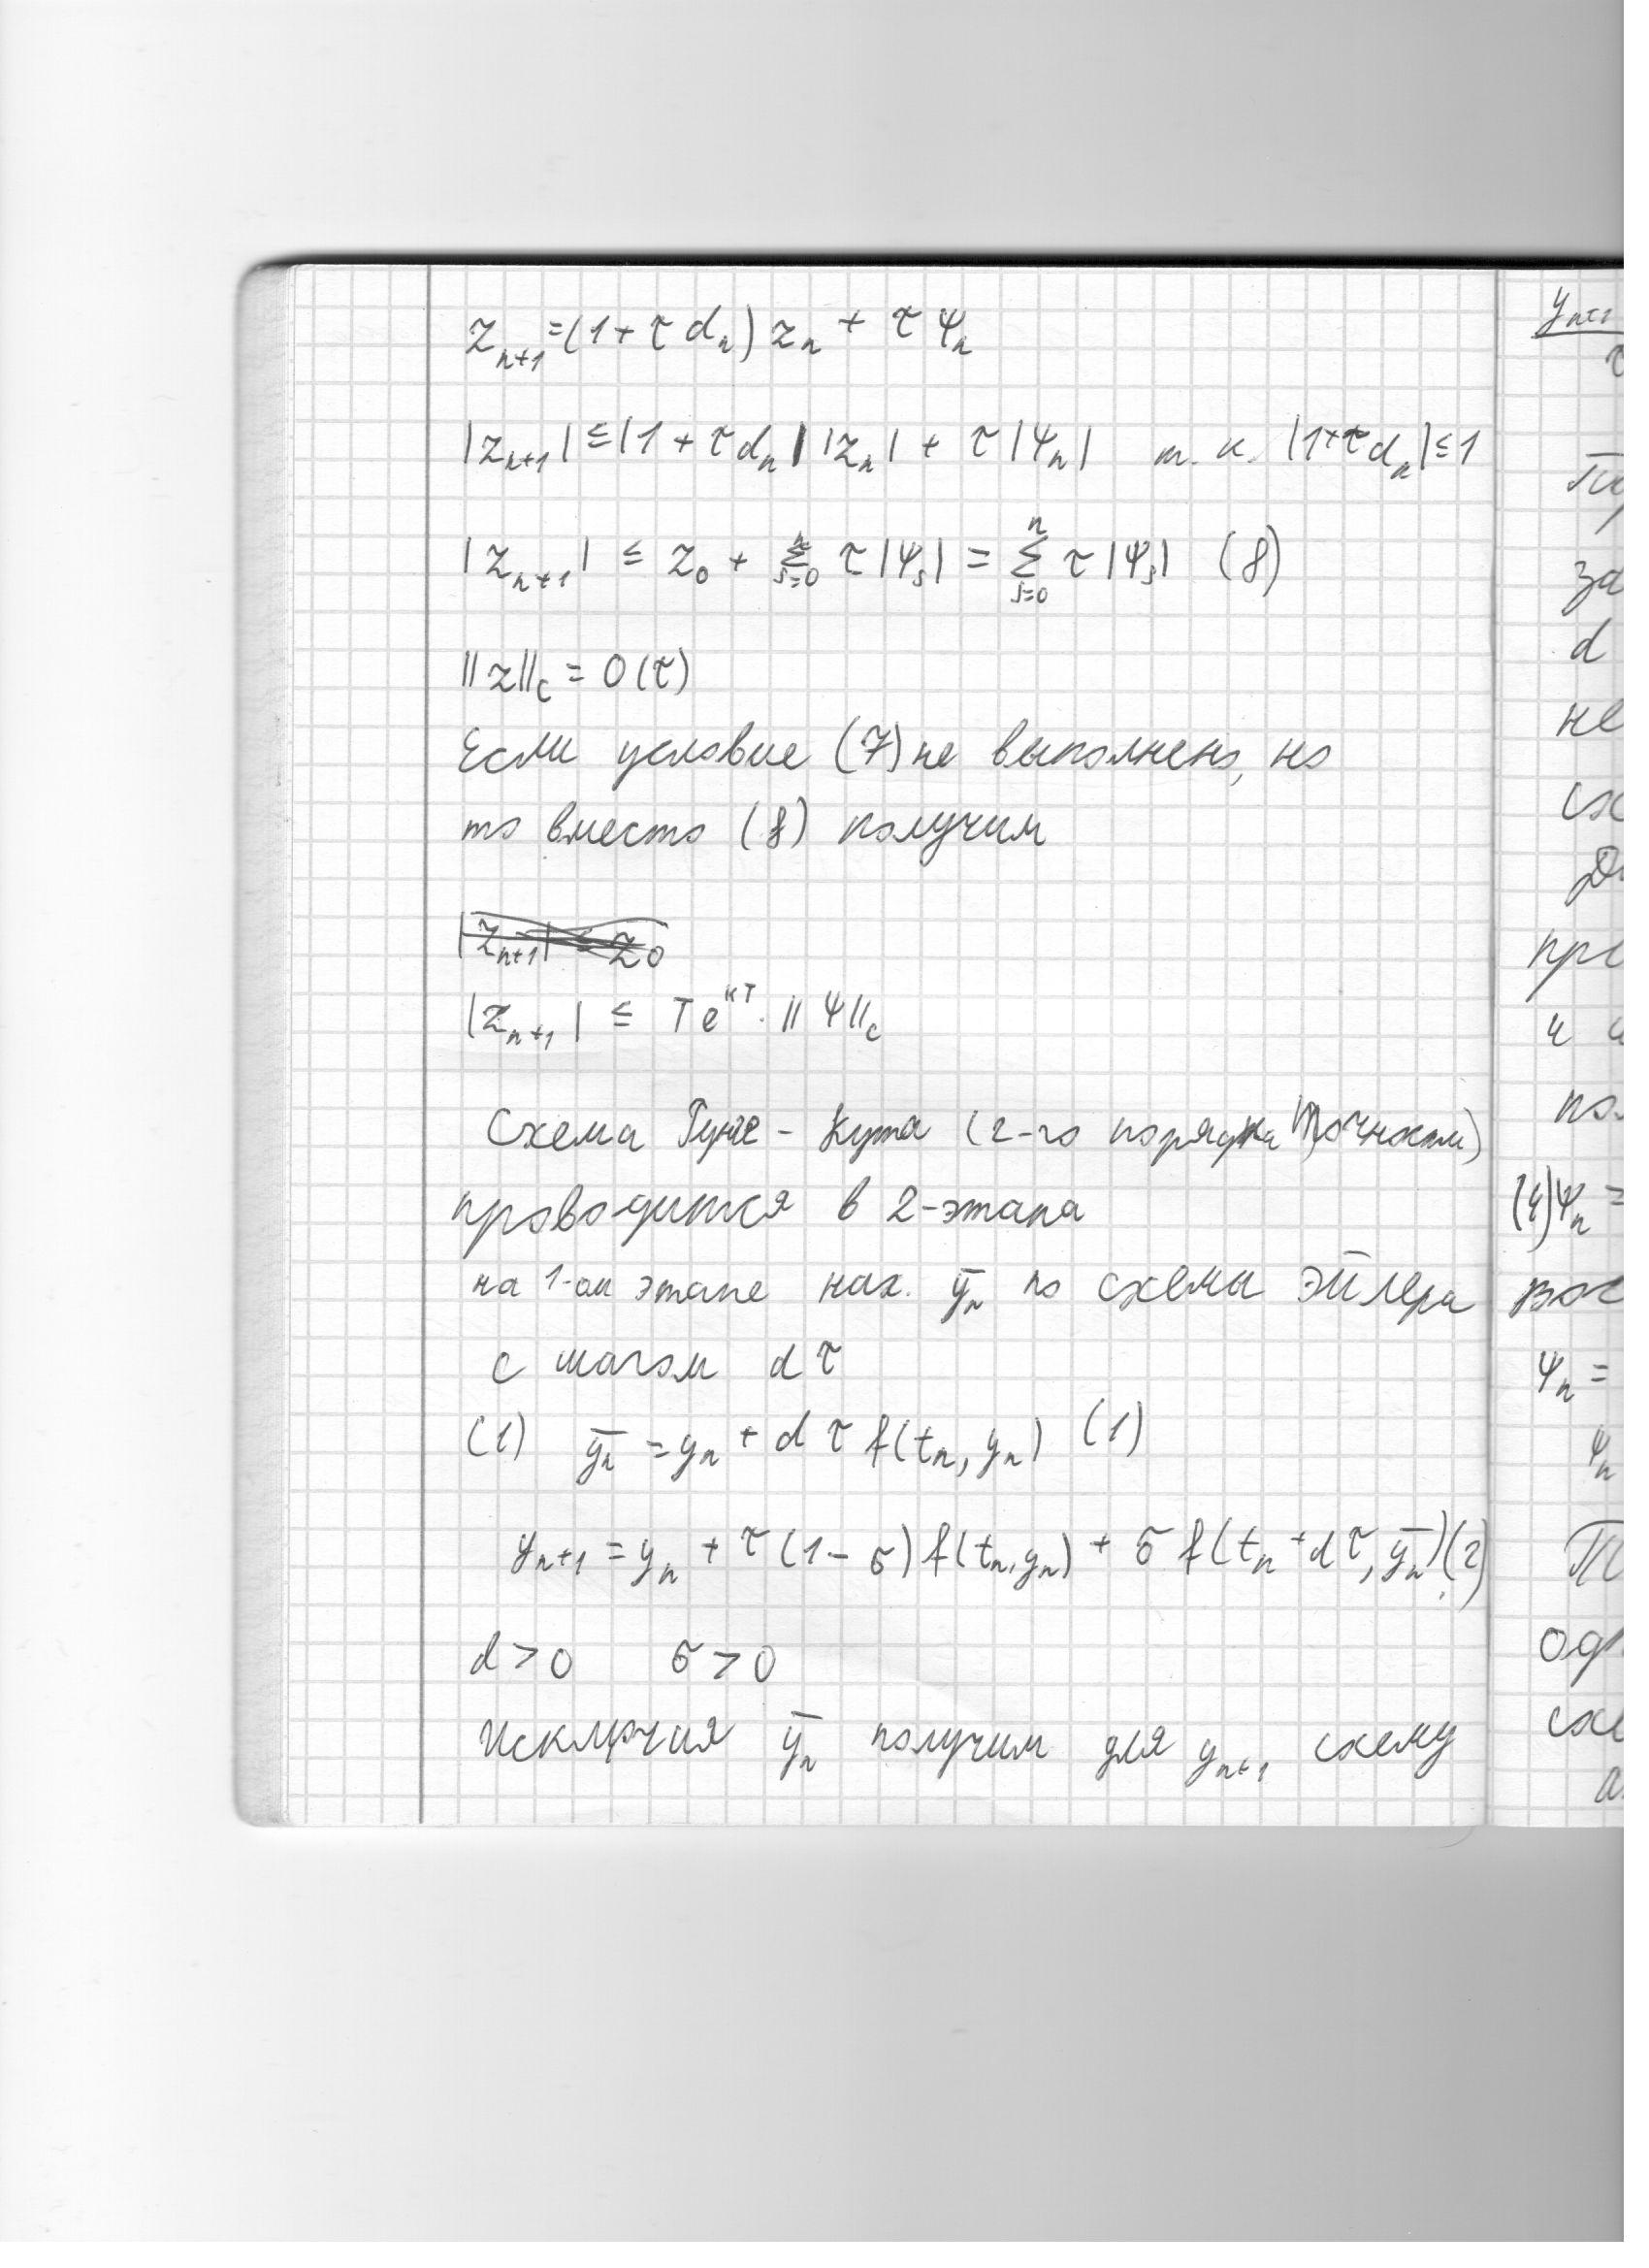 z_{n+1} = (1 + τ d_n) z_n + τ ψ_n
|z_{n+1}| ≤ |1 + τ d_n| |z_n| + τ |ψ_n| т. к. |1 + τ d_n| ≤ 1
|z_{n+1}| ≤ z_0 + Σ_{s=0}^{n} τ |ψ_s| = Σ_{s=0}^{n} τ |ψ_s| (8)
||z||_c = O(τ)
Если условие (7) не выполнено, но
то вместо (8) получим
|z_{n+1}| ≤ z_0
|z_{n+1}| ≤ T e^{KT} · ||ψ||_c
Схема Рунге - Кутта (2-го порядка точности)
проводится в 2-этапа
на 1-ом этапе нах. y̅_n по схемы Эйлера
с шагом d τ
(1) y̅_n = y_n + d τ f(t_n, y_n) (1)
y_{n+1} = y_n + τ (1 - σ) f(t_n, y_n) + σ f(t_n + d τ, y̅_n) (2)
d > 0 σ > 0
Исключая y̅_n получим для y_{n+1} схему
y_{n+1}
τ
за
d
не
сх
пр
и
по
(4) ψ_n =
ψ_n =
ψ_n
схе